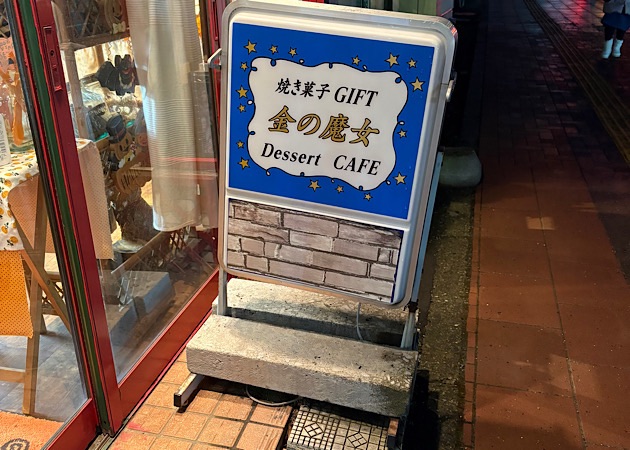 焼き菓子 GIFT
金の魔女
Dessert CAFE